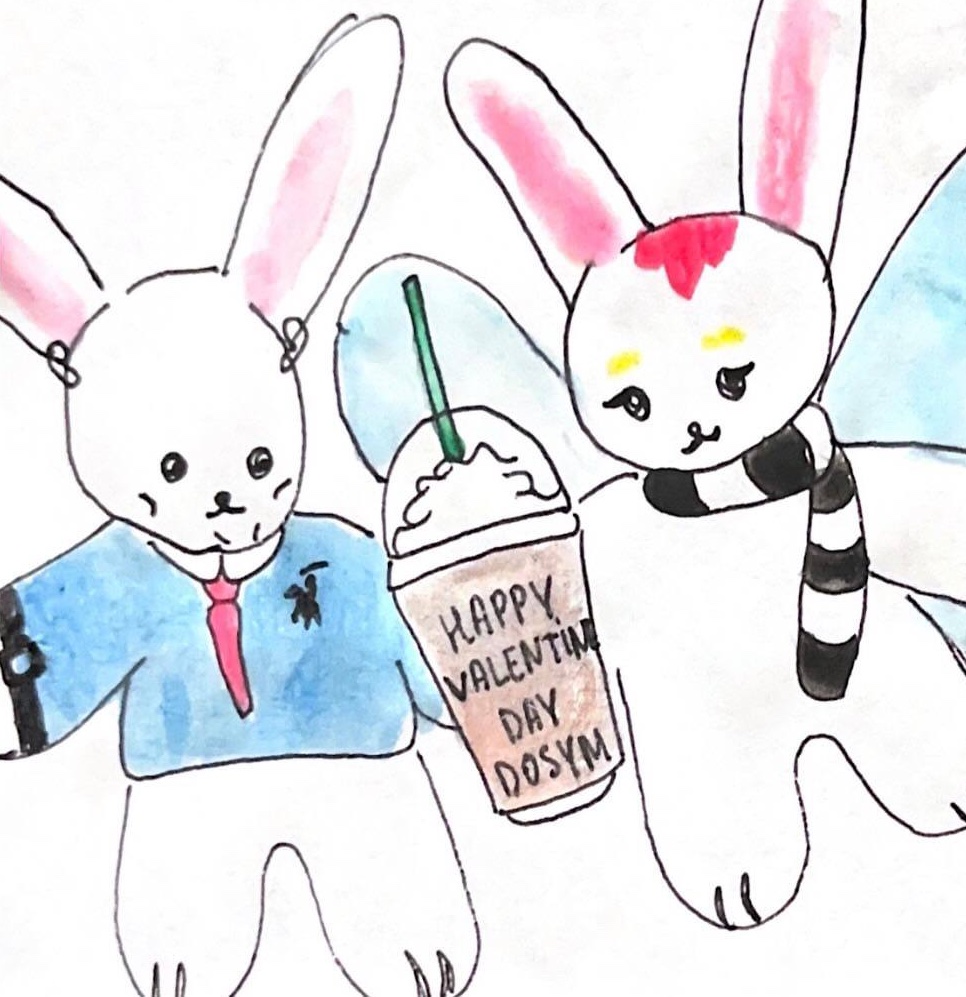 HAPPY
VALENTINE
DAY
DOSYM